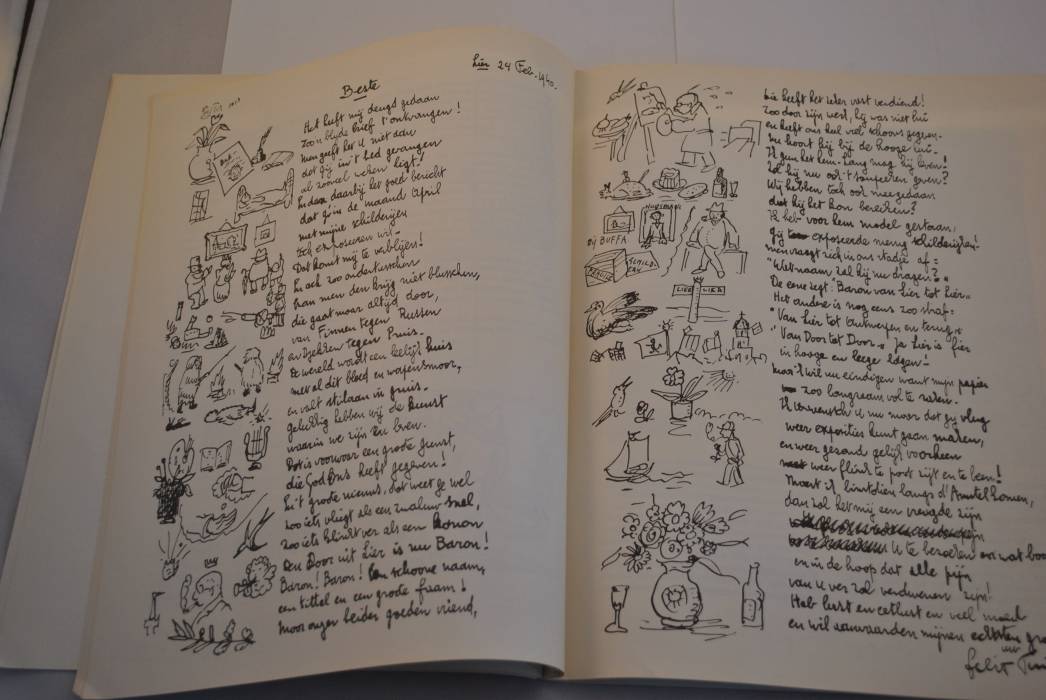 Lier 24 Feb. 1940.
Beste
Het heeft mij deugd gedaan
zoo'n blyde brief t'ontvangen!
Men geeft het u niet aan
dat gij in't bed gevangen
al zooveel weken ligt!
En dan daarbij het goed bericht
dat g'in de maand April
met mijne schilderijen
toch exposeeren wil-
Dat komt mij te verblijen!
En ach zoo ondertusschen
kan men den krijg niet blusschen,
die gaat maar altijd door,
van Finnen tegen Russen
en tegen Pruis-
De wereld wordt een leelijk huis
met al dit bloed en wapensmoor,
en valt stilaan in gruis-
gelukkig hebben wij de kunst
waarin we zijn en leven.
Dat is voorwaar een groote gunst,
die God ons heeft gegeven!
En 't groote nieuws, dat weet ge wel
zoo iets vliegt als een zwaluw snel,
zoo iets klinkt ver als een kanon
Den Door uit Lier is nu Baron!
Baron! Baron! Een schoone naam,
een tittel en een groote faam!
Maar onzer beider goeden vriend,
hie heeft het zeker vast verdiend!
Zoo door zijn werk, hij was niet lui
en heeft ons heel veel schoons gegeven-
Nu hoort hij bij de hooge lui-
Ik gun het hem- Lang mag hij leven!
Zal hij nu ook 't soupeeren geven?
Wij hebben toch ook meegedaan
dat hij het kon bereiken?
Ik heb voor hem model gestaan,
Gij exposeerde menig schilderijken!
men vraagt zich in ons stadje af:
"Wat naam zal hij nu dragen?"
De eene zegt: Baron van Lier tot Lier"
Het andere is nog eens zoo straf:
"Van Lier tot Antwerpen en terug"
"Van Door tot Door" ja Lier is fier
in hooge en leege lagen!
maar 'k wil nu eindigen want mijn papier
zoo langzaam vol te raken.
Ik u nu maar dat gij vlug
weer exposities kunt gaan maken,
en weer gezond gelijk voorheen
weer flink te poot zijt en te been!
Moest ik lintdien langs d'Amstel komen,
dan zal het mij een vreugde zijn
u te bezoeken en wat
en in de hoop dat alle pijn
van u ver zal verdwenen zijn!
Heb lust en eetlust en veel moed
en wil aanvaarden mijnen echten
Felix
Bij BUFFA
HUYSMANS
SCHILD
LIER LIRA